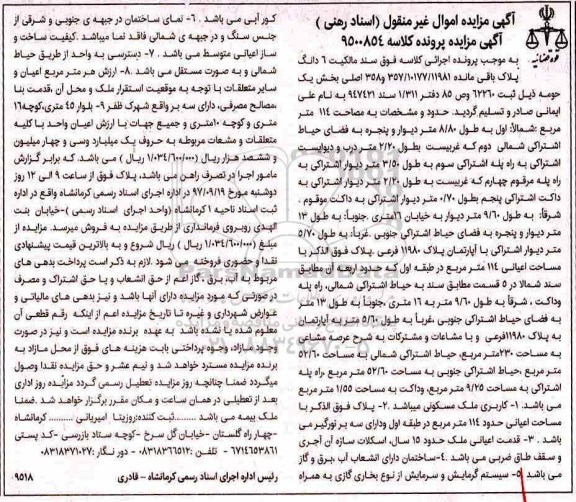 آگهی مزایده اموال غیر منقول (اسناد رهنی )
آگهی مزایده پرونده کلاسه ۹۵۰۰۸۵۴
قوه قضائیه
به موجب پرونده اجرائی کلاسه فوق سند مالکیت ۶ دانگ
پلاک باقی مانده ۳۵۷/۱۰۱۷۷/۱۱۹۸۱ و۳۵۸ اصلی بخش یک
حومه ذیل ثبت ۶۲۲۶۰ وص ۸۵ دفتر ۱/۳۱۱ سند ۹۴۷۴۲۱ به نام علی
ایمانی صادر و تسلیم گردید. حدود و مشخصات به مساحت ۱۱۴ متر
مربع :شمالاً: اول به طول ۸/۸۰ متر دیوار و پنجره به فضای حیاط
اشتراکی شمالی دوم که غربیست بطول ۲/۲۰ متر درب و دیوایست
اشتراکی به راه پله اشتراکی سوم به طول ۳/۵۰ متر دیوار اشتراکی به
راه پله مرقوم چهارم که غربیست به طول ۲/۲۰ متر دیوار اشتراکی به
داکت اشتراکی پنجم بطول ۰/۷۰ متر دیوار اشتراکی به داکت موقوم .
شرقاً: به طول ۹/۶۰ متر دیوار به خیابان ۱۶متری .جنوباً: به طول ۱۳
متر دیوار و پنجره به فضای حیاط اشتراکی جنوبی .غرباً: به طول ۵/۷۰
متر دیوار اشتراکی با آپارتمان پلاک ۱۱۹۸۰ فرعی .پلاک فوق الذکر با
مساحت اعیانی ۱۱۴ متر مربع در طبقه اول که حدود اعیان مطابق
سند شمالاً در ۵ قسمت مطابق سند به حیاط اشتراکی شمالی، راه پله
وداکت ، شرقاً به طول ۹/۶۰ متر به ۱۶ متری ،جنوباً به طول ۱۳ متر
به فضای حیاط اشتراکی جنوبی ،غرباً به طول ۵/۶۰ متر به آپارتمان
به پلاک ۱۱۹۸۰فرعی و با مشاعات و مشترکات به شرح عرصه مشاعی
به مساحت ۲۳۰متر مربع، حیاط اشتراکی شمالی به مساحت ۵۲/۶۰
متر مربع ،حیاط اشتراکی جنوبی به مساحت ۵۲/۶۰ متر مربع راه پله
اشتراکی به مساحت ۹/۲۵ متر مربع، وداکت به مساحت ۱/۵۵ متر مربع
می باشد. ۱- کاربری ملک مسکونی میباشد .۲- پلاک فوق الذکر با
مساحت اعیانی حدود ۱۱۴ متر مربع در طبقه اول ودارای سه بر نورگیر می
باشد . ۳- قدمت اعیانی ملک حدود ۱۵ سال، اسکلات سازه آن آجری
و سقف طاق ضربی می باشد .۴-ساختمان دارای انشعاب آب ،برق و گاز
می باشد .۵- سیستم گرمایش و سرمایش از نوع بخاری گازی به همراه
کور آبی می باشد . ۶- نمای ساختمان در جبهه ی جنوبی و شرقی از
جنس سنگ و در جبهه ی شمالی فاقد نما میباشد .کیفیت ساخت و
ساز اعیانی متوسط می باشد . ۷- دسترسی به واحد از طریق حیاط
شمالی و به صورت مستقل می باشد .۸- ارزش هر متر مربع اعیان و
سایر متعلقات با توجه به موقعیت استقرار ملک و محل آن ،قدمت بنا
،مصالح مصرفی، دارای سه بر واقع شهرک ظفر ۹- بلوار ۴۵ متری،کوچه۱۶
متری و کوچه ۱۰متری و جمیع جهات با ارزش اعیان واحد با کلیه
متعلقات و مشعات مربوطه به حروف یک میلیارد وسی و چهارمیلیون
و ششصد هزار ریال (۱/۰۳۴/۶۰۰/۰۰۰ ریال ) می باشد. که برابر گزارش
مامور اجرا در تصرف راهن می باشد، پلاک فوق از ساعت ۹ الی ۱۲ روز
دوشنبه مورخ ۹۷/۰۹/۱۹ در اداره اجرای اسناد رسمی کرمانشاه واقع در اداره
ثبت اسناد ناحیه ۱کرمانشاه (واحد اجرای اسناد رسمی )-خیابان بنت
الهدی روبروی فرمانداری از طریق مزایده به فروش میرسد. مزایده از
مبلغ (۱/۰۳۴/۶۰۰/۰۰۰ ریال ) ریال شروع و به بالاترین قیمت پیشنهادی
نقداً و حضوری فروخته می شود .لازم به ذکر است پرداخت بدهی های
مربوط به آب، برق ، گاز اعم از حق انشعاب و یا حق اشتراک و مصرف
در صورتی که مورد مزایده دارای آنها باشد و نیز بدهی های مالیاتی و
عوارض شهرداری و غیره تا تاریخ مزایده اعم از اینکه رقم قطعی آن
معلوم شده یا شده باشد به عهده برنده مزایده است و نیز در صورت
وجود مازاد، وجوه پرداختی بابت هزینه های فوق از محل مازاد به
برنده مزایده مسترد خواهد شد و نیم عشر و حق مزایده نقداً وصول
میگردد ضمناً چنانچه روز مزایده تعطیل رسمی گردد مزایده روز اداری
بعد از تعطیلی در همان ساعت و مکان مقرر برگزار خواهد شد .ضمناً
ملک بیمه می باشد ........ ثبت کننده:روزبتا امیریانی .......... کرمانشاه
-چهار راه گلستان -خیابان گل سرخ -کوچه ستاد بازرسی -کد پستی
۶۷۱۴۶۵۳۸۶۱ - تلفن: ۰۸۳۱۸۳۶۶۵۱۲ - دور نگار :۰۸۳۱۸۳۷۱۰۳۷
رئیس اداره اجرای اسناد رسمی کرمانشاه - قادری
۹۵۱۸